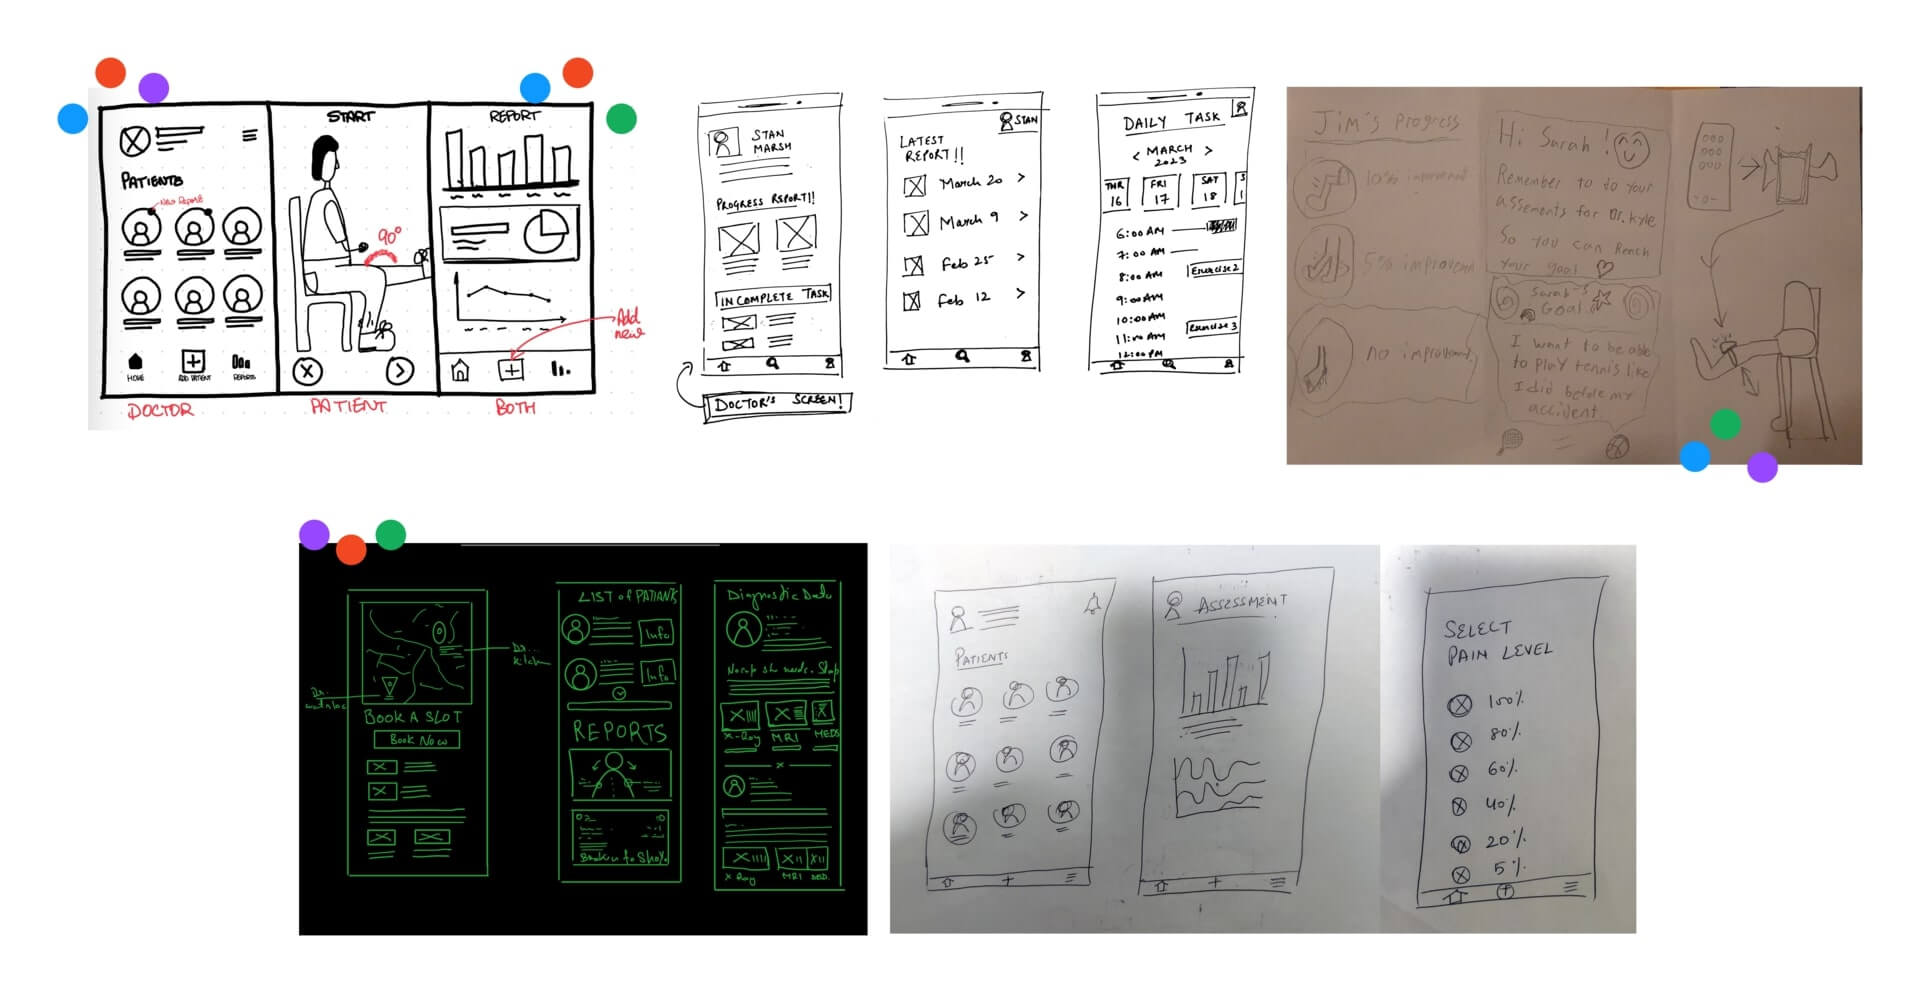 START
REPORT
PATIENTS
NEW REPORT
90°
HOME
ADD PATIENT
REPORTS
Add
new
DOCTOR
PATIENT
BOTH
STAN
MARSH
PROGRESS REPORT!!
INCOMPLETE TASK
DOCTOR'S SCREEN!
STAN
LATEST
REPORT!!
March 20 >
March 9 >
Feb 25 >
Feb 12 >
DAILY TASK
< MARCH >
2023
THR FRI SAT S
16 17 18 1
6:00 AM
7:00 AM
8:00 AM
Exercise 2
9:00 AM
10:00 AM
11:00 AM
Exercise 3
12:00 PM
Jim's Progress
10% improvement
5% improvement
no improvement
Hi Sarah!
Remember to do your
assements for Dr. Kyle
So you can Reach
your goal
Sarah's
Goal
I want to be able
to play tennis like
I did before my
accident.
Dr.
BOOK A SLOT
Book Now
LIST of PATIANTS
Info
Info
REPORTS
Diagnostic Data
X-Ray MRI MEDS
X Ray MRI
PATIENTS
ASSESSMENT
SELECT
PAIN LEVEL
100%
80%
60%
40%
20%
5%